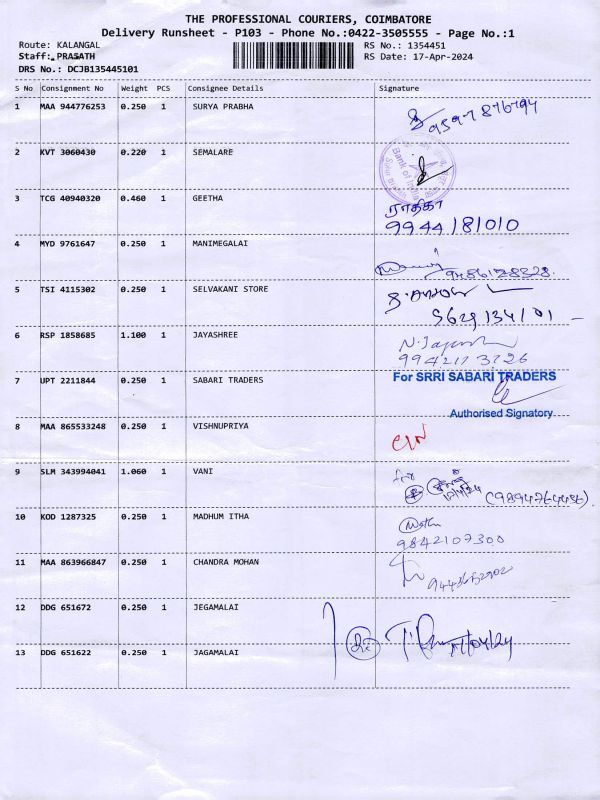 THE PROFESSIONAL COURIERS, COIMBATORE
Delivery Runsheet - P103 - Phone No.:0422-3505555 - Page No.:1
Route: KALANGAL RS No.: 1354451
Staff: PRASATH RS Date: 17-Apr-2024
DRS No.: DCJB135445101
S No Consignment No Weight PCS Consignee Details Signature
1 MAA 944776253 0.250 1 SURYA PRABHA
2 KVT 3060430 0.220 1 SEMALARE
Bank of India
3 TCG 40940320 0.460 1 GEETHA ராதிகா
9944181010
4 MYD 9761647 0.250 1 MANIMEGALAI
5 TSI 4115302 0.250 1 SELVAKANI STORE
5629134101
6 RSP 1858685 1.100 1 JAYASHREE
9942173226
7 UPT 2211844 0.250 1 SABARI TRADERS For SRRI SABARI TRADERS
Authorised Signatory
8 MAA 865533248 0.250 1 VISHNUPRIYA
9 SLM 343994041 1.060 1 VANI
10 KOD 1287325 0.250 1 MADHUM ITHA
9842107300
11 MAA 863966847 0.250 1 CHANDRA MOHAN
12 DDG 651672 0.250 1 JEGAMALAI
13 DDG 651622 0.250 1 JAGAMALAI